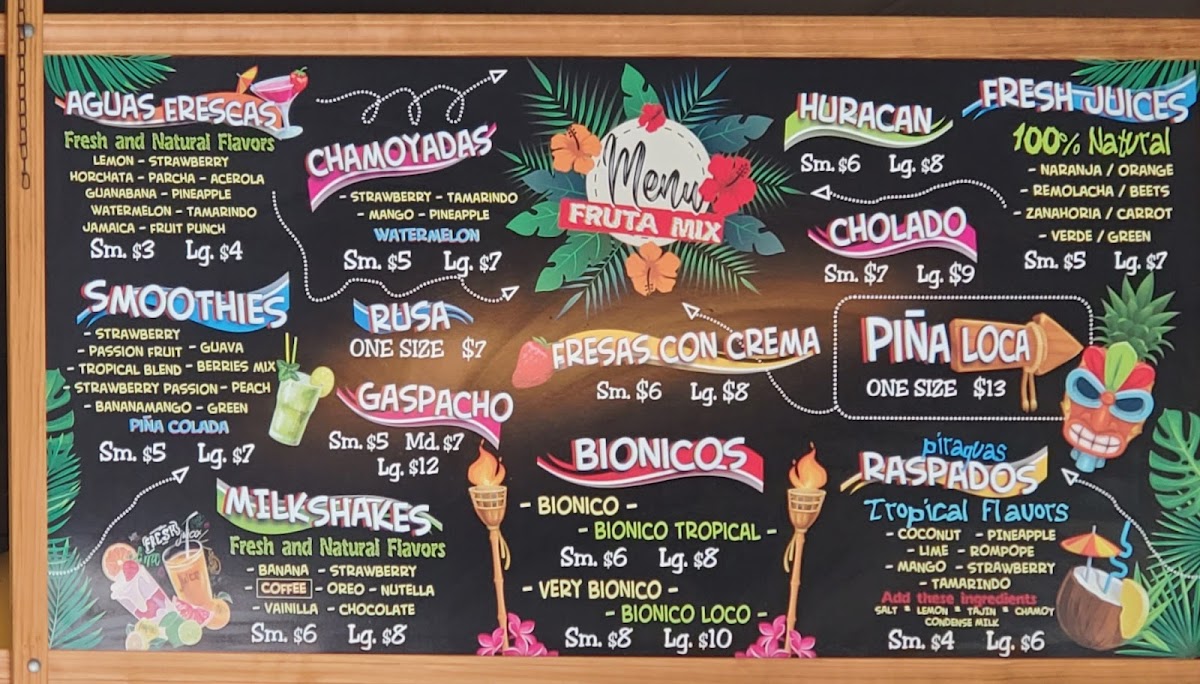 AGUAS FRESCAS
Fresh and Natural Flavors
LEMON - STRAWBERRY
HORCHATA - PARCHA - ACEROLA
GUANABANA - PINEAPPLE
WATERMELON - TAMARINDO
JAMAICA - FRUIT PUNCH
Sm. $3 Lg. $4
SMOOTHIES
- STRAWBERRY
- PASSION FRUIT - GUAVA
- TROPICAL BLEND - BERRIES MIX
- STRAWBERRY PASSION - PEACH
- BANANAMANGO - GREEN
PIÑA COLADA
Sm. $5 Lg. $7
CHAMOYADAS
- STRAWBERRY - TAMARINDO
- MANGO - PINEAPPLE
WATERMELON
Sm. $5 Lg. $7
RUSA
ONE SIZE $7
GASPACHO
Sm. $5 Md. $7
Lg. $12
MILKSHAKES
Fresh and Natural Flavors
- BANANA - STRAWBERRY
- COFFEE - OREO - NUTELLA
- VAINILLA - CHOCOLATE
Sm. $6 Lg. $8
FRESH
JUICE
Menu
FRUTA MIX
FRESAS CON CREMA
Sm. $6 Lg. $8
BIONICOS
- BIONICO -
- BIONICO TROPICAL -
Sm. $6 Lg. $8
- VERY BIONICO -
- BIONICO LOCO -
Sm. $8 Lg. $10
HURACAN
Sm. $6 Lg. $8
CHOLADO
Sm. $7 Lg. $9
FRESH JUICES
100% Natural
- NARANJA / ORANGE
- REMOLACHA / BEETS
- ZANAHORIA / CARROT
- VERDE / GREEN
Sm. $5 Lg. $7
PIÑA LOCA
ONE SIZE $13
piraguas
RASPADOS
Tropical Flavors
- COCONUT - PINEAPPLE
- LIME - ROMPOPE
- MANGO - STRAWBERRY
- TAMARINDO
Add these ingredients
SALT * LEMON * TAJIN * CHAMOY
CONDENSE MILK
Sm. $4 Lg. $6